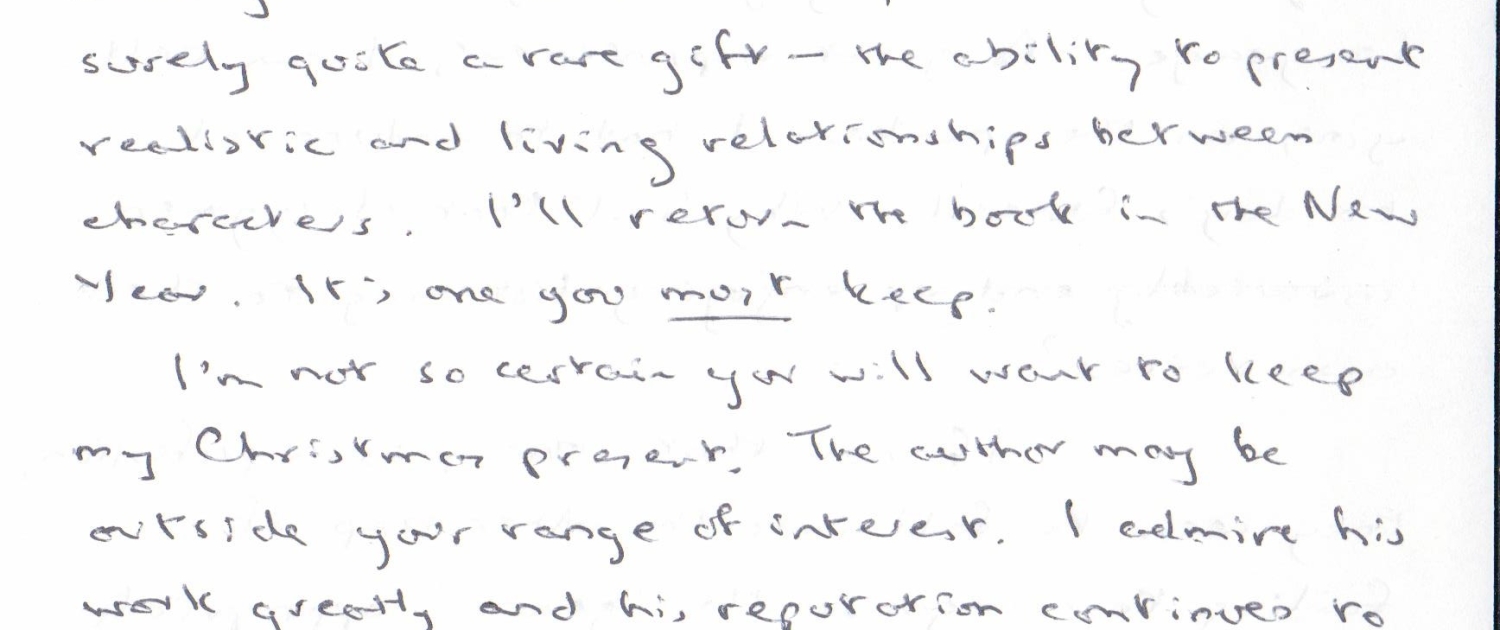 surely quite a rare gift – the ability to present
realistic and living relationships between
characters. I'll return the book in the New
Year. It's one you must keep.
I'm not so certain you will want to keep
my Christmas present. The author may be
outside your range of interest. I admire his
work greatly and his reputation continues to